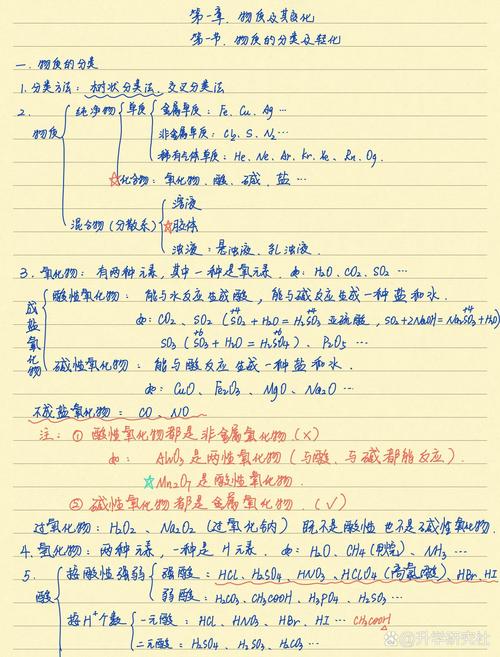 第一章. 物质及其变化
第一节. 物质的分类及转化
一. 物质的分类
1. 分类方法: 树状分类法、交叉分类法
2.
物质
纯净物
单质
金属单质: Fe、Cu、Ag …
非金属单质: Cl₂、S、N₂…
稀有气体单质: He、Ne、Ar、Kr、Xe、Rn、Og.
☆化合物: 氧化物、酸、碱、盐 …
混合物 (分散系)
溶液
☆胶体
浊液: 悬浊液、乳浊液.
3. 氧化物: 有两种元素, 其中一种是氧元素. 如: H₂O、CO₂、SO₂ …
成盐氧化物
酸性氧化物: 能与水反应生成酸, 能与碱反应生成一种盐和水.
如: CO₂、SO₂ (SO₂ + H₂O = H₂SO₃ 亚硫酸, SO₂+2NaOH=Na₂SO₃+H₂O) +4 +4 +4
SO₃ (SO₃ + H₂O = H₂SO₄)、P₂O₅ … +6 +6
碱性氧化物: 能与酸反应生成一种盐和水.
如: CuO、Fe₂O₃、MgO、Na₂O …
不成盐氧化物: CO、NO
注: ① 酸性氧化物都是非金属氧化物. (×)
如: Al₂O₃是两性氧化物 (与酸、与碱都能反应).
☆Mn₂O₇是酸性氧化物.
② 碱性氧化物都是金属氧化物. (√)
过氧化物: H₂O₂、Na₂O₂ (过氧化钠) 既不是酸性也不是碱性氧化物.
4. 氢化物: 两种元素, 一种是H元素. 如: H₂O、CH₄(甲烷)、NH₃ …
5.
酸
按酸性强弱
强酸: HCl、H₂SO₄、HNO₃、HClO₄ (高氯酸)、HBr、HI
弱酸: H₂CO₃、CH₃COOH、H₃PO₄、H₂SO₃ …
按H⁺个数
一元酸: HCl、HNO₃、HBr、HI … CH₃COOH
二元酸: H₂SO₄、H₂SO₃、H₂CO₃ …
升学研究社